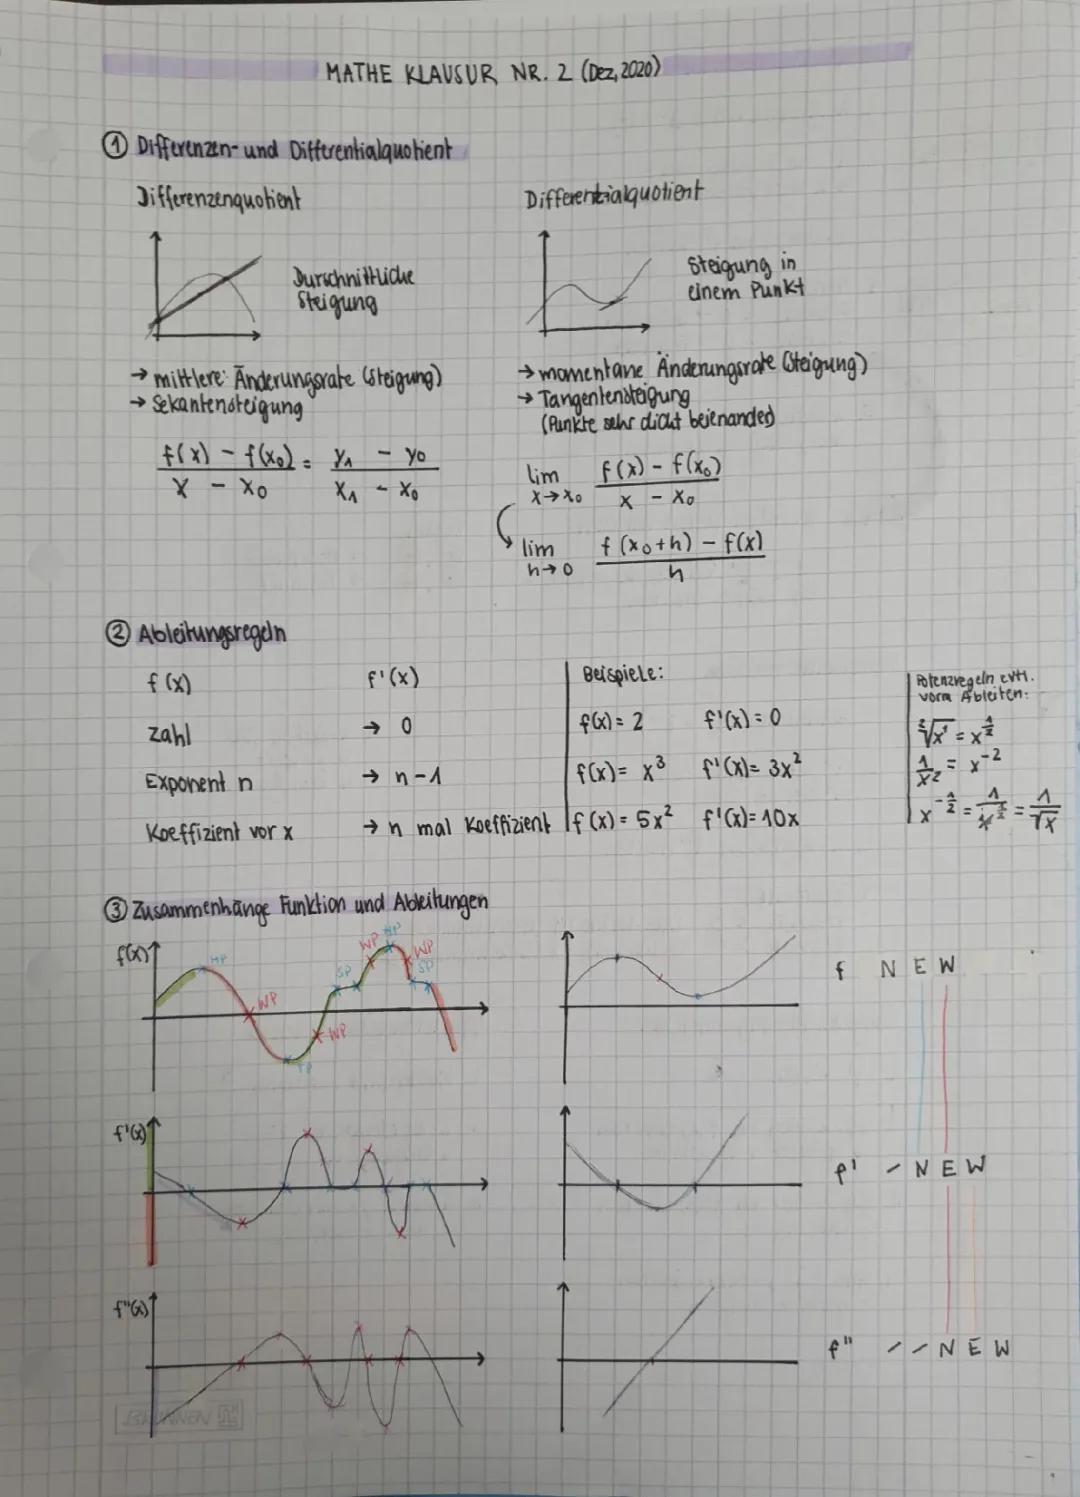 MATHE KLAUSUR NR. 2 (Dez, 2020)
① Differenzen- und Differentialquotient
Differenzenquotient
Durschnittliche
Steigung
→ mittlere: Änderungsrate (Steigung)
→ Sekantensteigung
f(x) - f(x₀) = y₁ - y₀
x - x₀ x₁ - x₀
Differentialquotient
Steigung in
einem Punkt
→ momentane Änderungsrate (Steigung)
→ Tangentensteigung
(Punkte sehr dicht beienander)
lim f(x) - f(x₀)
x→x₀ x - x₀
lim f(x₀+h) - f(x)
h→0 h
② Ableitungsregeln
f(x) f'(x)
Zahl → 0
Exponent n → n-1
Koeffizient vor x → n mal Koeffizient
Beispiele:
f(x) = 2 f'(x) = 0
f(x) = x³ f'(x) = 3x²
f(x) = 5x² f'(x) = 10x
Potenzregeln evtl.
vorm Ableiten:
²√x¹ = x^½
1/x² = x⁻²
x^-½ = 1/x^½ = 1/√x
③ Zusammenhänge Funktion und Ableitungen
f(x)
HP WP TP WP SP WP HP WP SP
f N E W
f'(x)
f' - N E W
f''(x)
f'' - - N E W
BRUNNEN